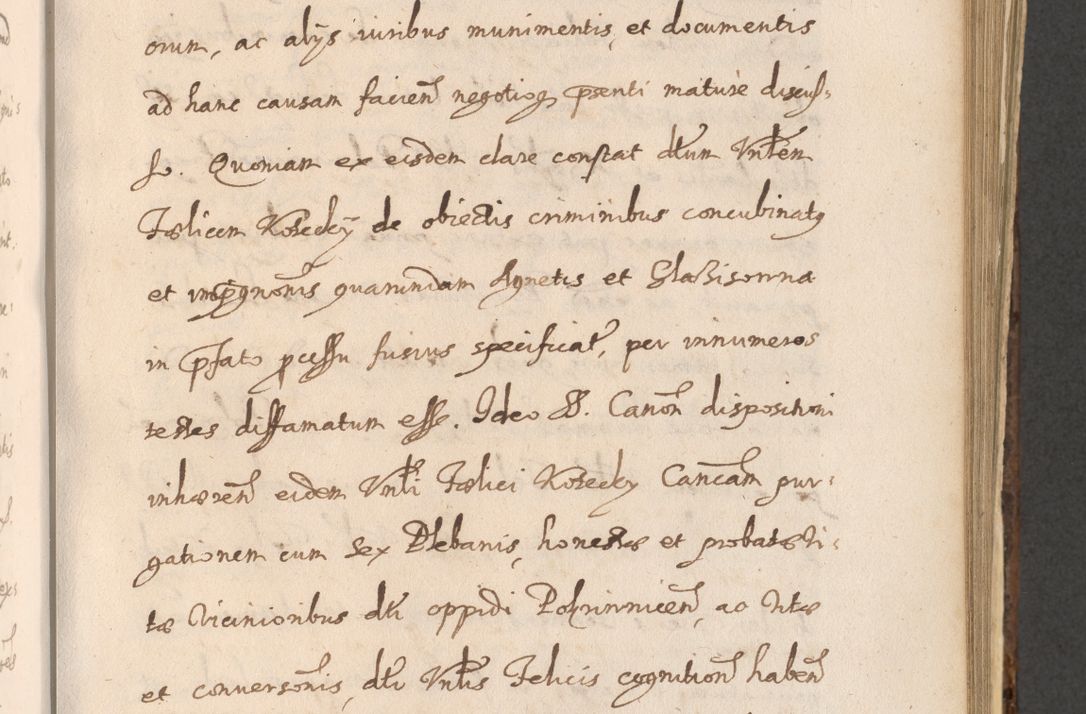 orum, ac alijs iuribus munimentis, et documentis
ad hanc causam facien negotioq psenti mature discus=
sis. Quoniam ex eisdem clare constat dtum Vnblem
Fælicem Kosecky de obiectis criminibus concubinatq
et impgnonis quarundam Agnetis et
in pfato pcessu fusius specificat, per innumeros
testes diffamatum esse. Ideo SS. Canon dispositioni
inhæren eidem Vnbli Fælici Kosecky Canicam pur=
gationem cum sex Plebanis, honestæ et probatæ vi=
tæ Vicinioribus dti oppidi ac vitæ
et conversonis, dti Vnblis Felicis cognition haben